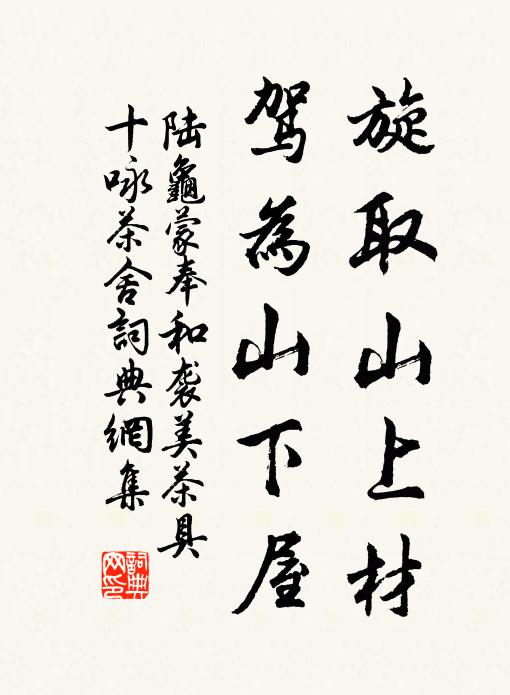 旋取山上材
驾為山下屋
陆龜蒙奉和袭美茶具
十咏茶舍詞典網集
詞典网印